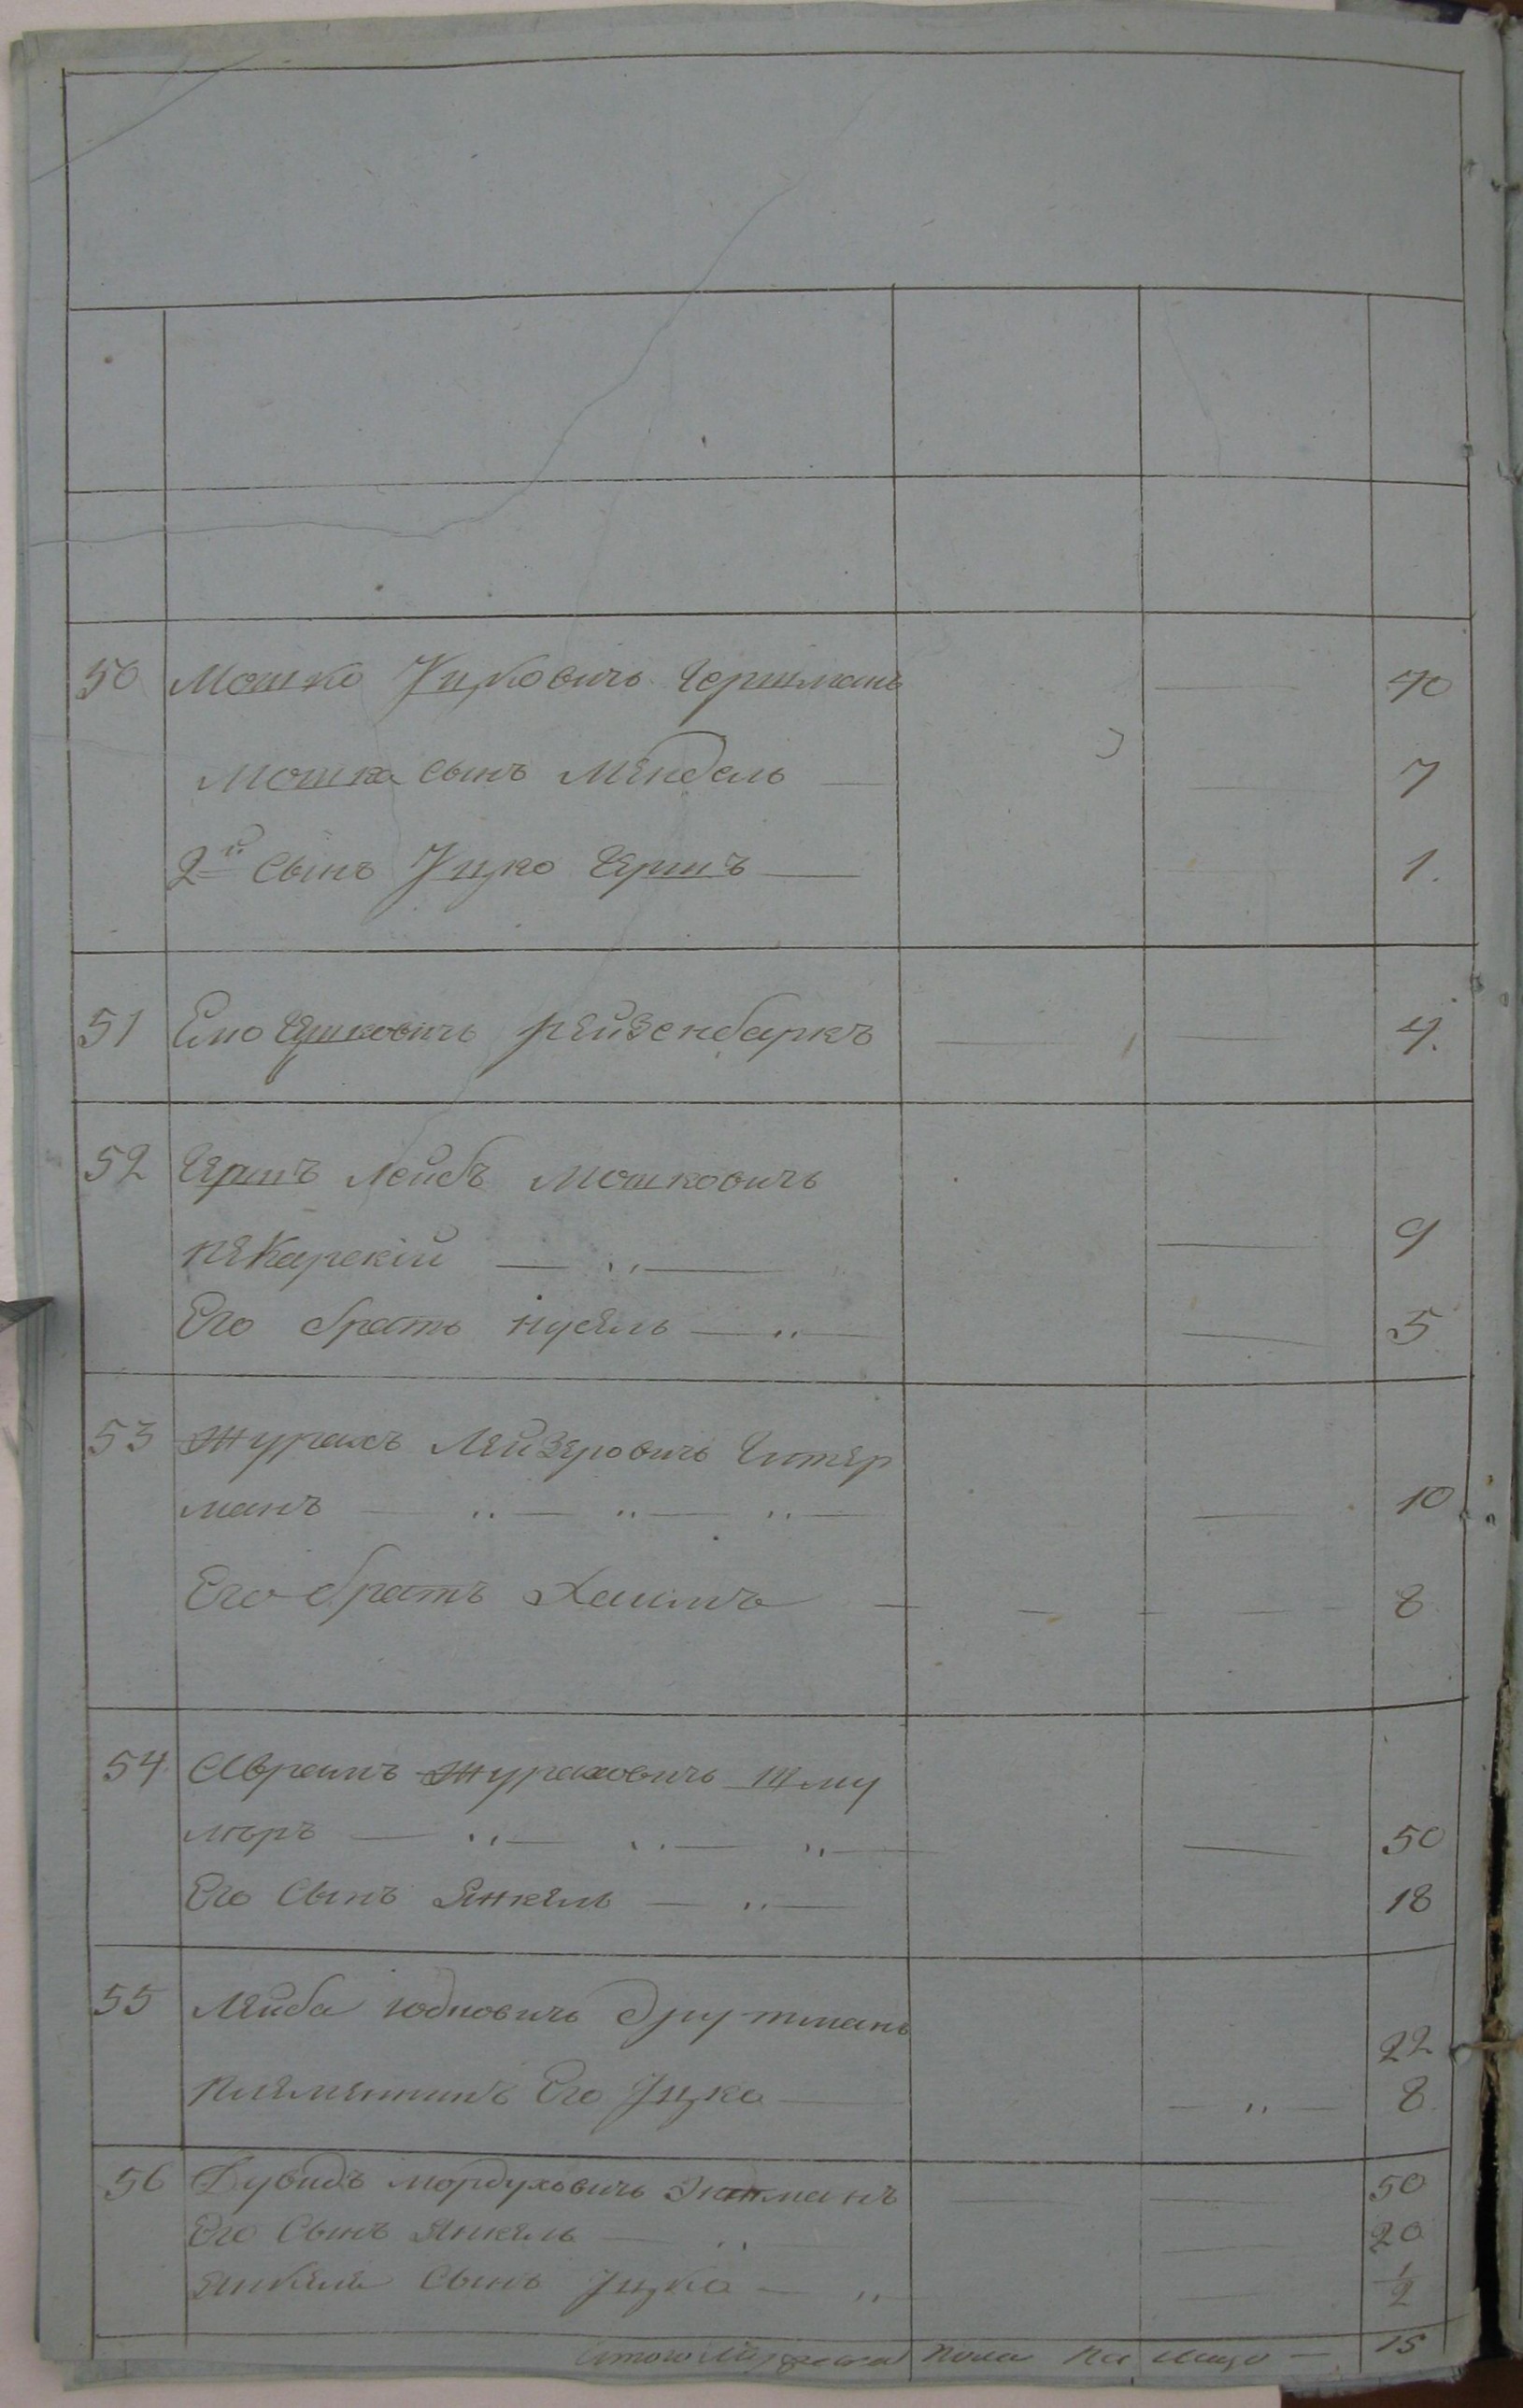 50 Мошко Ицковичь Гершманъ — 40
Мошка сынъ Мендель — — 7
2й Сынъ Ицко Гершъ — — 1.
51 Ешковичь Рейзенбаркъ — — 4.
52 Гершъ Лейбъ Мошковичь
Пекарскій — „ — — 9
Его братъ Нусель — „ — — 5
53 Журахъ Лейзеровичь Гитер
манъ — „ — „ — „ — — 10
Его братъ Хаимъ — — — — 8
54 Авраамъ Жураховичь Шму
леръ — „ — „ — „ — — 50
Его Сынъ Янкель — „ — 18
55 Лейба Юдковичь Друтманъ 22
Племянникъ Его Ицка — — „ — 8
56 Дувидъ Мордуховичь — — 50
Его Сынъ Янкель — „ — — 20
Янкеля Сынъ Ицка — „ — 1/2
Итого Мужеска пола на лицо — 15